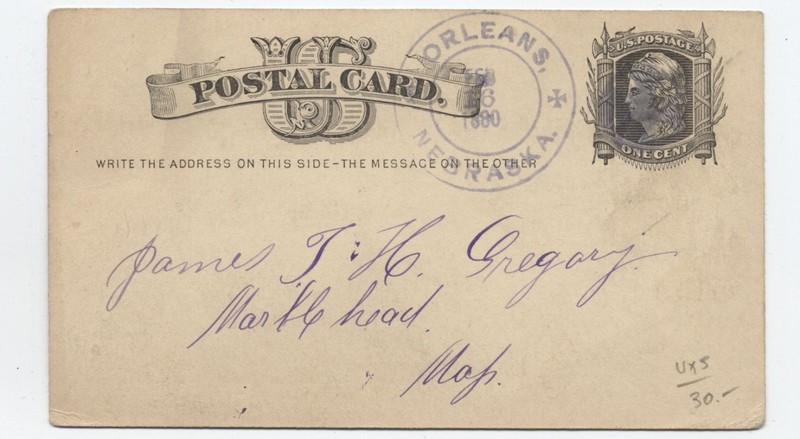 US
POSTAL CARD.
ORLEANS,
NEBRASKA.
FEB
6
1880
U.S. POSTAGE
ONE CENT
WRITE THE ADDRESS ON THIS SIDE–THE MESSAGE ON THE OTHER
James J. H. Gregory.
Marblehead.
Mass.
UX5
30.–